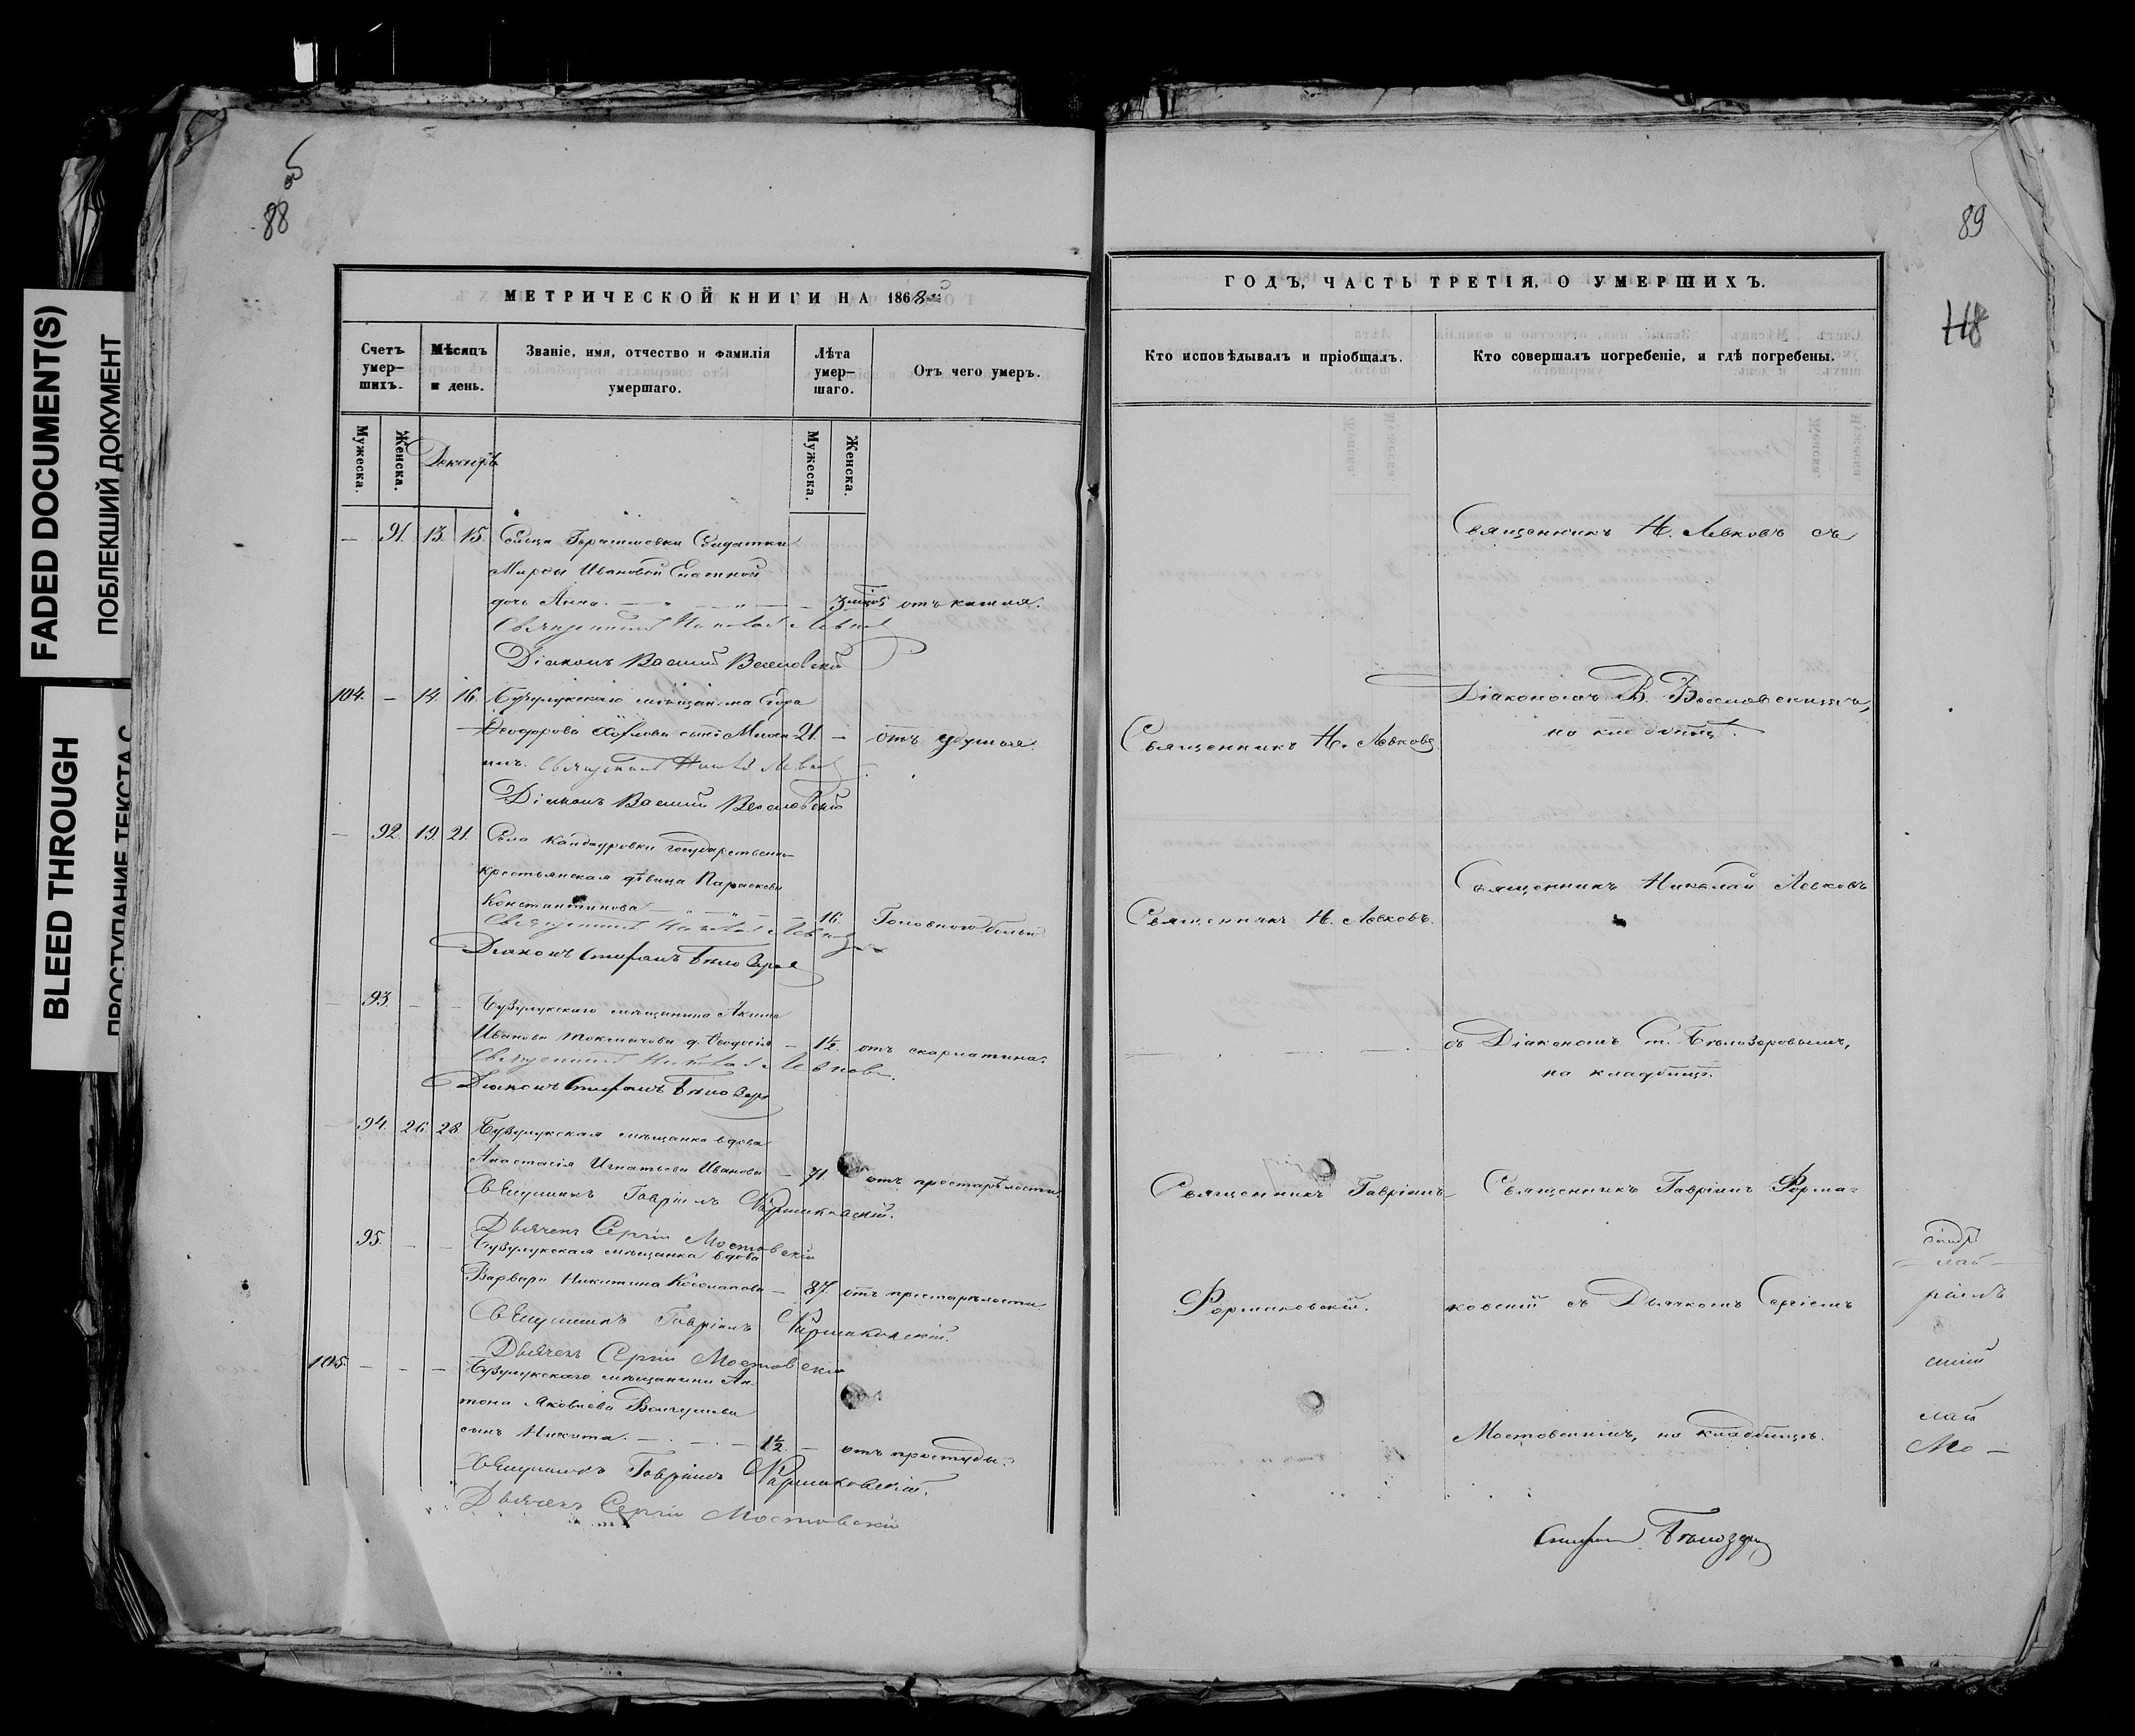 FADED DOCUMENT(S)
ПОБЛЕКШИЙ ДОКУМЕНТ
BLEED THROUGH
ПРОСТУПАНИЕ ТЕКСТА С
88 об
МЕТРИЧЕСКОЙ КНИГИ НА 1868й
Счетъ умер-шихъ.
Мѣсяцъ и день.
Званіе, имя, отчество и фамилія умершаго.
Лѣта умер-шаго.
Отъ чего умеръ.
Мужеска.
Женска.
Декабрь
Мужеска.
Женска.
— 91. 13. 15. Солдатки
Ивановой
дочь Анна. — 3 отъ кашля.
Священникъ Николай Левковъ
Діаконъ Василій
104. — 14. 16. Бузулукскаго мѣщанина
Ѳеодорова сынъ 21. — отъ удушья.
Священникъ Левковъ
Діаконъ Василій
— 92. 19. 21. Села Кандауровки государственно
крестьянская дѣвица Параскева
Константинова — 16. Головною болью
Священникъ Николай Левковъ
Діаконъ Стефанъ Бѣлозеровъ
— 93. — — Бузулукскаго мѣщанина Акима
Иванова Токмачова д. Ѳеодосія — 1½. отъ скарлатина.
Священникъ Николай Левковъ.
Діаконъ Стефанъ Бѣлозеровъ
94. 26. 28. Бузулукская мѣщанка вдова
Анастасія Игнатьева Иванова — 71. отъ престарѣлости
Священникъ Гавріилъ Формаковскій.
Дьячекъ Сергій Мостовскій
95. — — Бузулукская мѣщанка вдова
Варвара Никитина — 87. отъ престарѣлости.
Священникъ Гавріилъ Формаковскій.
Дьячекъ Сергій Мостовскій
105. — — — Бузулукскаго мѣщанина Ан-
тона Яковлева
сынъ Никита. — 1½. — отъ простуды.
Священникъ Гавріилъ Формаковскій.
Дьячекъ Сергій Мостовскій
89
118
ГОДЪ, ЧАСТЬ ТРЕТІЯ, О УМЕРШИХЪ.
Кто исповѣдывалъ и пріобщалъ.
Кто совершалъ погребеніе, и гдѣ погребены.
Священникъ Н. Левковъ съ
Діакономъ В.
на кладбищѣ.
Священникъ Н. Левковъ
Священникъ Николай Левковъ
Священникъ Н. Левковъ.
съ Діакономъ Ст. Бѣлозеровымъ,
на кладбищѣ.
Священникъ Гавріилъ
Священникъ Гавріилъ Форма-
Формаковскій.
ковскій съ Дьячкомъ Сергіемъ
Мостовскимъ, на кладбищѣ.
лай
ріилъ
силій
лай
Мо —
Стефанъ Бѣлозеровъ